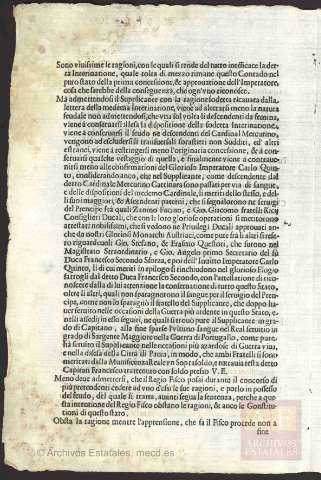 Sono viuissime le ragioni, con le quali si rende del tutto inefficace la det-
ta Interinatione, quale tolta di mezzo rimane questo Contado nel
puro stato della prima concessione, & approuatione dell'Imperatore,
cosa che sarebbe della conseguenza, che ogn'vno riconosce.
Mà admettendosi il Supplicante con la ragione sodetta ricauata dalla
lettera della medema Interinatione, viene ad alterarsi meno la natura
feudale non admettendosi, che vna sol volta li descendenti da femina,
viene à conseruarsi illesa la dispositione della sodetta Interinatione,
viene à conseruarsi il feudo ne descendenti del Cardinal Mercurino,
vengono ad escludersi li trasuersali forastieri non Sudditi, ed altri
estranei, viene à restringersi meno l'originaria concessione, & à con-
seruarsi qualche vestiggio di quella, e finalmente viene à contraue-
nirsi meno alle confirmationi del Glorioso Imperatore Carlo Quin-
to, considerando anco, che nel Supplicante, come descendente dal
detto Cardinale Mercurino Gattinara sono passati per via di sangue,
e delle dispositioni del medemo Cardinale, li meriti dello stesso, e del-
li suoi maggiori, & Ascendenti paterni, che si segnalorno ne seruigi
del Prencipe frà quali Zanino Fiscal, e Gio. Giacomo fratelli Ricij
Consiglieri Ducali, che con le loro gloriose operationi si meritorono
attestati nobilissimi, che si vedono ne Priuilegi Ducali approuati an-
che da nostri Gloriosi Monarchi Austriaci, come pure frà li altri si reso-
ro riguardeuoli Gio. Stefano, & Erasmo Questori, che furono nel
Magistrato Straordinario, e Gio. Angelo primo Secretario del fù
Duca Francesco Secondo Sforza, e poi dell'Inuitto Imperatore Carlo
Quinto, li di cui meriti in epilogo si rinchiudono nel glorioso Elogio
fattogli dal detto Duca Francesco Secondo, con l'attestatione di rico-
noscere dalla di lui attentione la conseruatione di tutto questo Stato,
oltre li altri, quali non sparagnorono il sangue per il seruigio del Pren-
cipe, come non lo sparagnò il fratello del Supplicante, che doppo ha-
uer seruito nelle occasioni della Guerra più ardente in questo Stato, e
nelli assedij nelli seguiti, ne quali seruì pure il Supplicante in gra-
do di Capitano, alla fine sparse l'vltimo sangue nel Real seruitio in
grado di Sargente Maggiore nella Guerra di Portugallo, come pure
hà seruito il Supplicante nelle occasioni più azardose di Guerra viua,
e nella difesa della Città di Pauia, in modo, che ambi Fratelli si sono
meritati dalla Munificenza Reale vn Soprasoldo, e tuttauia resta detto
Capitan Francesco trattenuto con soldo presso V. E.
Meno deue admettersi, che il Regio Fisco possi durante il concorso di
più pretendenti cedere ad vno d'essi le sue ragioni, e porlo in possesso
del feudo, del quale si tratta, auanti segua la sentenza, perche a que-
sta intentione del Regio Fisco obstano le ragioni, & anco le Constitu-
tioni di questo stato.
Obsta la ragione mentre l'apprensione, che fà il Fisco procede non a
fine
© Archivos Estatales, mecd.es
ARCHIVOS
ESTATALES